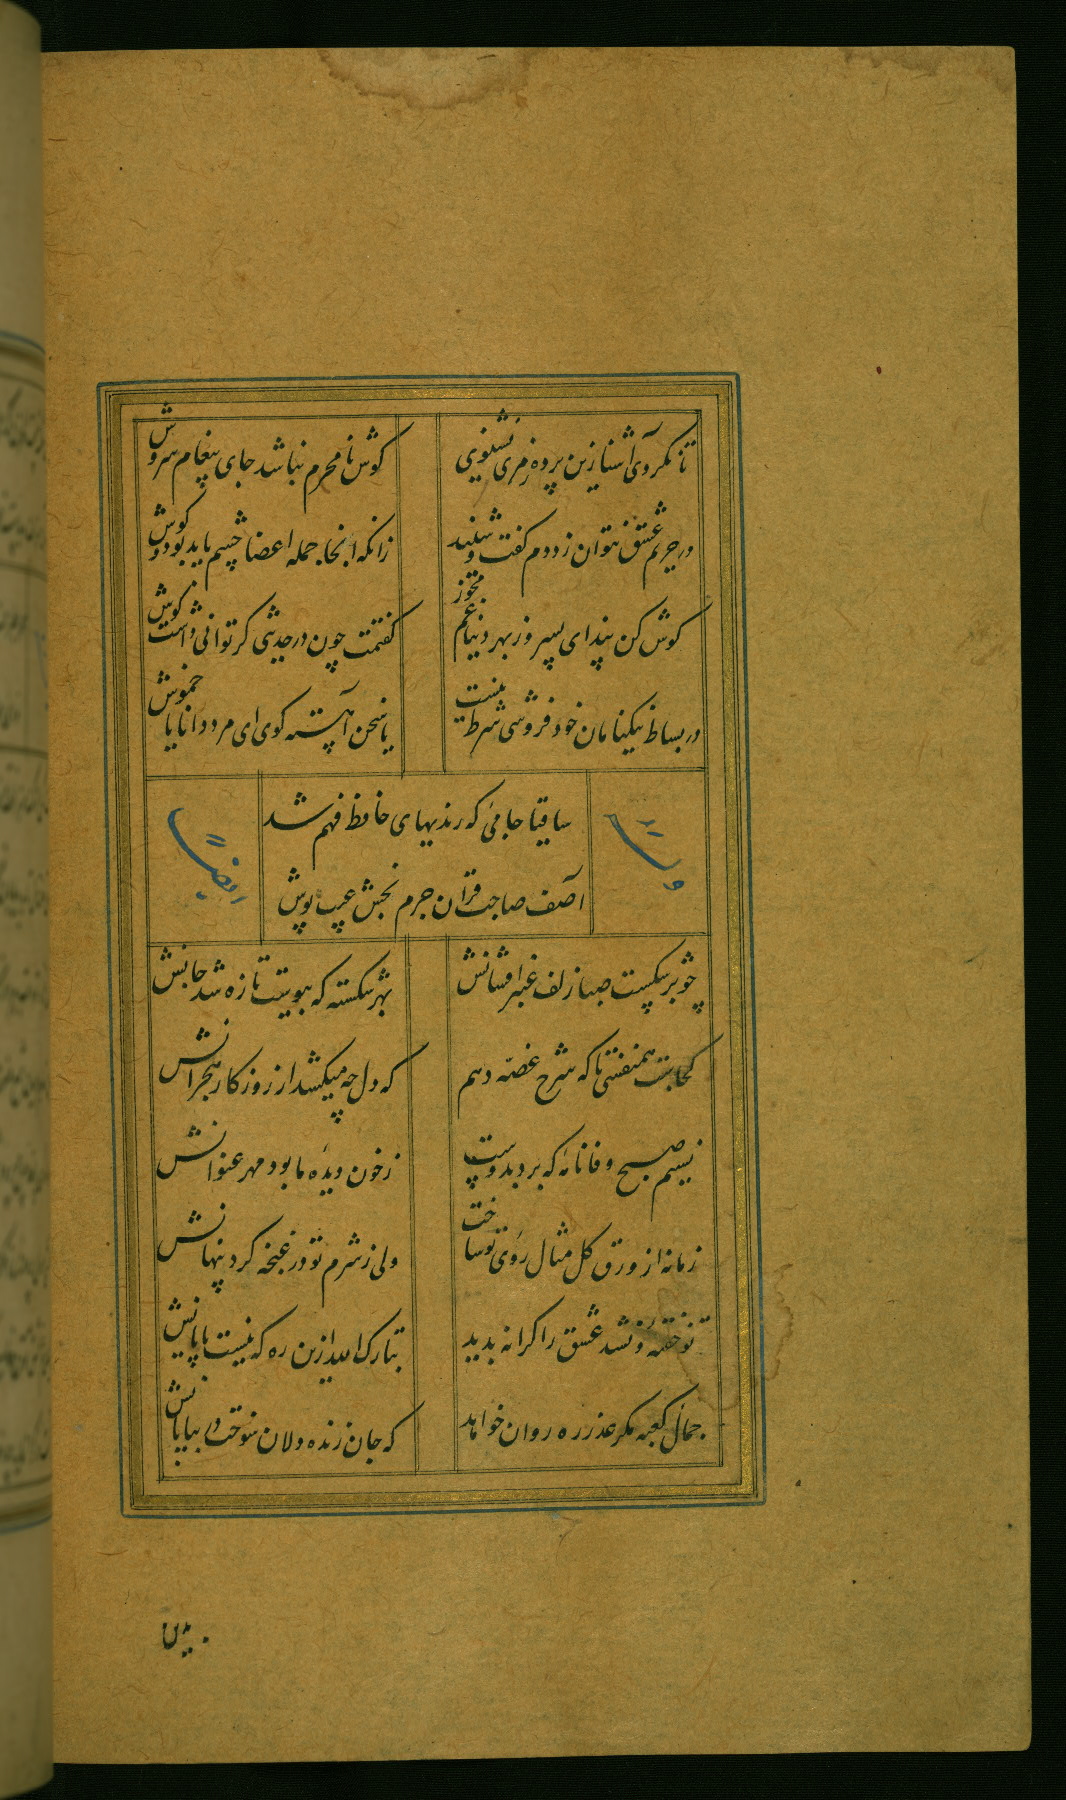 تا نکردی آشنا زین پرده رمزی نشنوی
کوش نامحرم نباشد جای پیغام سروش
در حریم عشق نتوان زد دم کفت و شنید
زانکه آنجا جمله اعضا چشم باید بود و کوش
کوش کن پند ای پسر وز بهر دنیا غم مخور
کفتمت چون در حدیثی کر توانی داشت کوش
در بساط نیکنامان خود فروشی شرط نیست
یا سخن آهسته کوی ای مرد دانا یا خموش
ساقیا جامی که رندیهای حافظ فهم شد
آصف صاحب قران جرم بخش عیب پوش
وله
ایضا
چو بر شکست صبا زلف عنبر افشانش
بهر شکسته که پیوست تازه شد جانش
کجاست همنفسی تا که شرح غصه دهم
که دل چه میکشد از روزکار هجرانش
نسیم صبح وفا نامه که برد بدوست
زخون دیده ما بود مهر عنوانش
زمانه از ورق کل مثال روی تو ساخت
ولی ز شرم تو در غنچه کرد پنهانش
تو خفته و نشد عشق را کرانه پدید
تبارک الله ازین ره که نیست پایانش
جمال کعبه مکر عذر ره روان خواهد
که جان زنده دلان سوخت در بیابانش
بدین